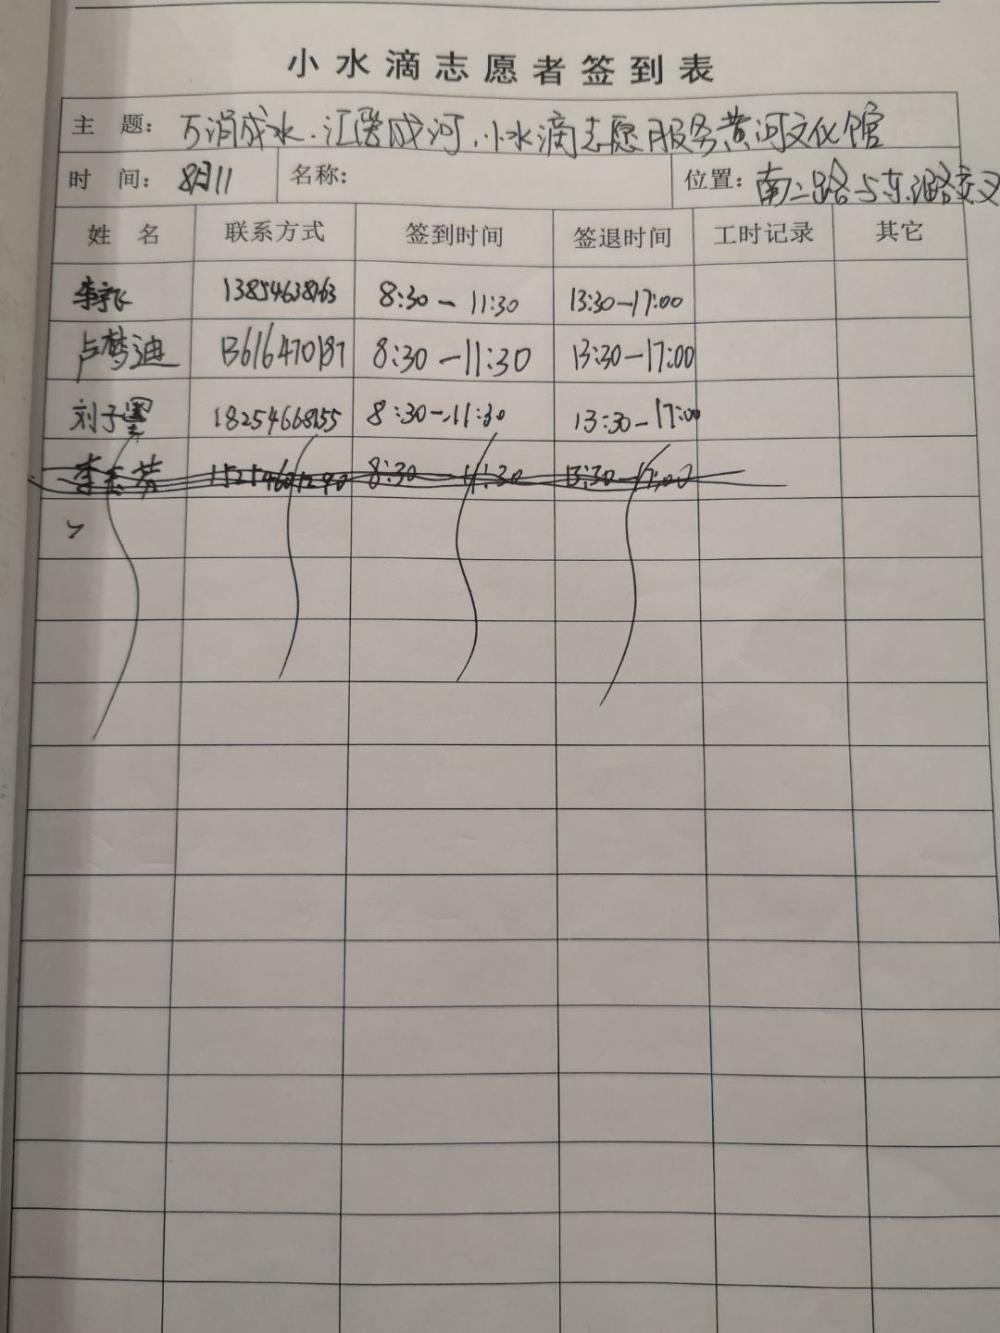 小水滴志愿者签到表
主 题: 万涓成水.汇聚成河.小水滴志愿服务黄河文化馆
时 间: 8月11 名称: 位置: 南二路与东路交叉
姓 名 联系方式 签到时间 签退时间 工时记录 其它
8:30—11:30 13:30—17:00
卢梦迪 13616470187 8:30—11:30 13:30—17:00
刘子墨 18254668155 8:30—11:30 13:30—17:00
8:30 11:30 13:30—17:00